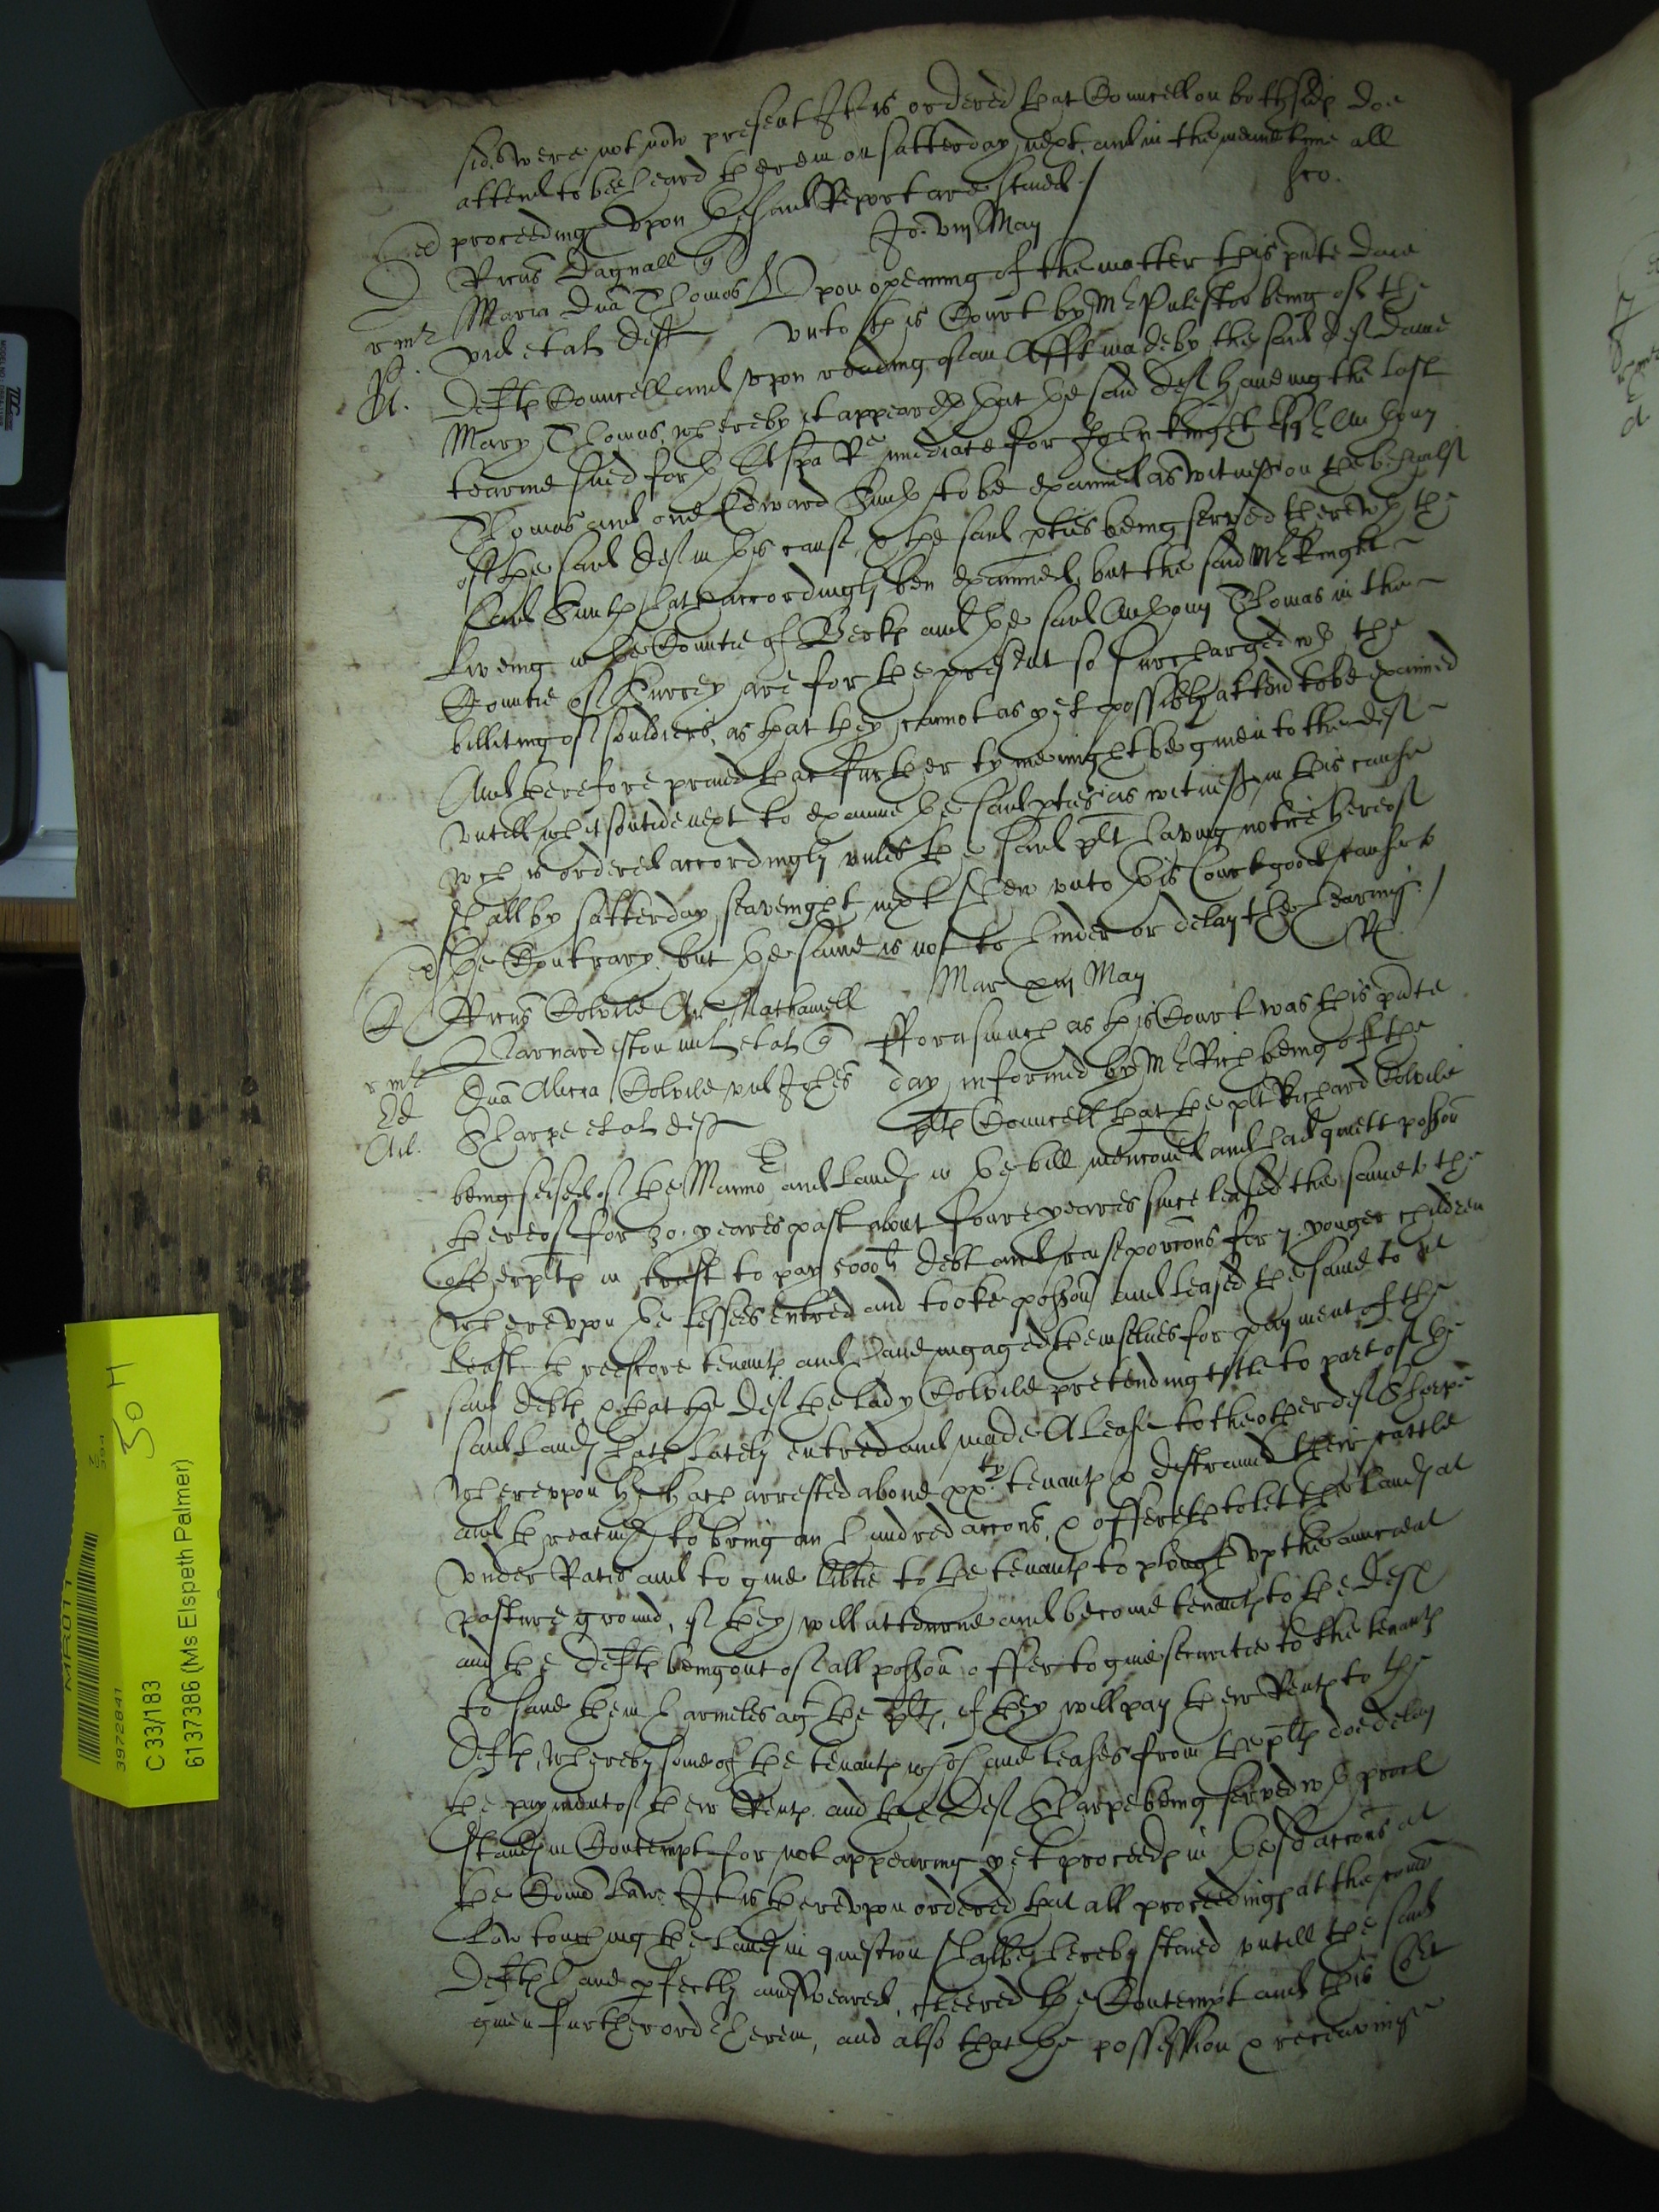 sides were not now present It is ordered that Councell on both sides doe
attend to bee heard therein on Satterday next, and in the meane tyme all
proceedings vpon the said Report are staied./
Jo: viij May
Ricus Bagnall q
Maria Dna Thomas Vpon opening of the matter this pnte daie
vid et al defts vnto this Court by Mr Pulestoo being of the
Defts Councell and vpon reading of an Afft made by the said deft dame
Mary Thomas, whereby it appeareth that the said deft haveing the last
tearme sued forth A Spa Re imediate for John Knight Esqr Anthony
Thomas and one Edward Smith to be examined as witnesses on the behalfe
of the said deft in this cause, & the said pties being served therewth the
said Smith hath accordingly ben examined, but the said Mr Knight
liveing in the Countie of Berks and the said Anthony Thomas in the
Countie of Surrey are for the present so surcharged wth the
billiting of souldiers, as that they cannot as yet possibly attend to be examined
And therefore praied that further tyme might be given to the deft
vntill whitsontide next to examine the said pties as witnesses in this cause
wch is ordered accordingly vnles the said plt having notice hereof
shall by Satterday seavenight next shew vnto this Court good cause to
the Contrary. but the same is not to hinder or delay the hearing./
Mar xiij May
Ricus Colvile Ar Nathaniell
Barnardeston mil et al q fforasmuch as this Court was this pnte
Dna Alicia Colvile vid Johes day informed by Mr Rich being of the
Sharpe et al defts plts Councell that the plt Richard Colvile
being seised of the Mannor and lands in the bill mencioned and had quiett possion
thereof for 30. yeares past about foure yeares since leased the same to the
other plts in trust to pay 5000li debt and raise porcons for 7. yonger children
Wherevpon the lessees entred and tooke possion and leased the same to at
least threescore tenants and have ingaged themselves for payment of the
said debts & that the deft the lady Colvile pretending title to part of the
said lands hath lately entred and made A lease to the other deft Sharpe
Wherevpon he hath arrested above xxty tenants & distrained their cattle
and threatneth to bring an hundred accons, & offereth to let the lands at
vnder Rates and to give libtie to the tenants to plough vp the auncient
pasture ground, if they will attourne and become tenants to the Deft
and the defts being out of all possion offer to give securitie to the tenants
to save them harmeles agt the plts, if they will pay their Rents to the
Defts, Whereby some of the tenants wch have leases from the plts doe delay
the payment of their Rents. and the Deft Sharpe being served wth proces
stands in Contempt for not appearing yet proceeds in the sd accons at
the Comon Lawe It is therevpon ordered that all proceedings at the comon
Law touching the lands in question shalbe hereby staied vntill the said
Defts have pfectly answeared, cleered the Contempt and this Cort
given further order therein, and also that the possession & receaving
50 H
3972841
C 33/183
6137386 (Ms Elspeth Palmer)